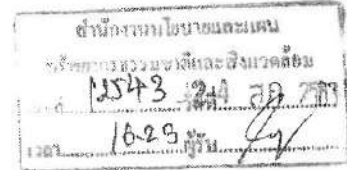 สำนักงานนโยบายและแผน
ทรัพยากรธรรมชาติและสิ่งแวดล้อม
12543 วันที่ 24 ส.ค. 2563
เวลา 16.23 ผู้รับ